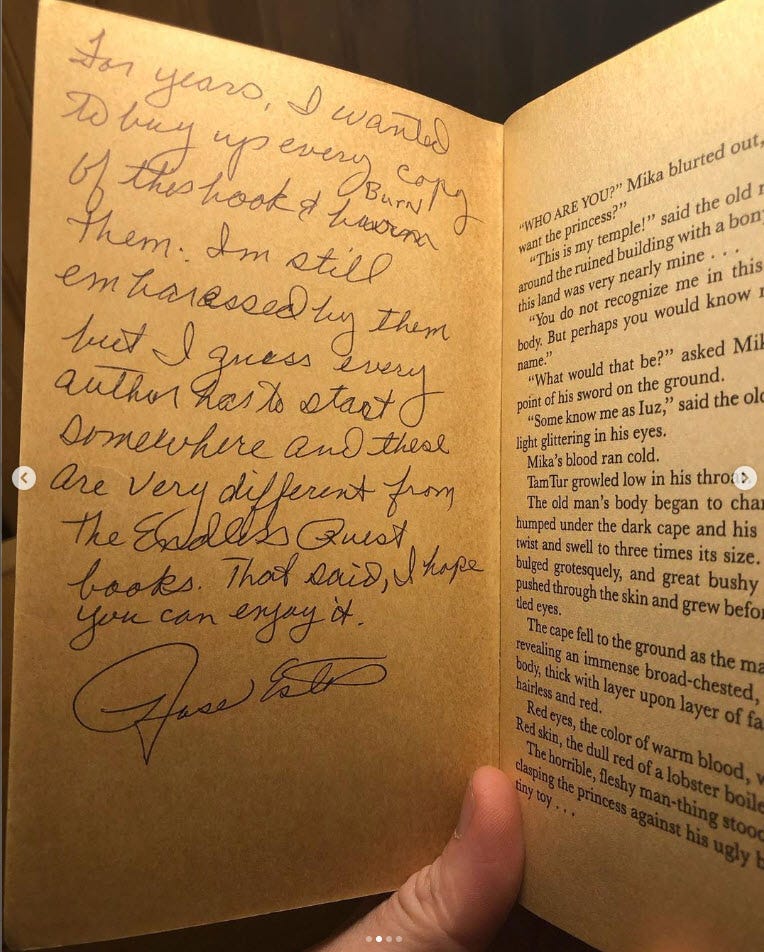 For years, I wanted
to buy up every copy
of this book & burn
Burn
them. I'm still
embarassed by them
but I guess every
author has to start
somewhere and these
are very different from
the Endless Quest
books. That said, I hope
you can enjoy it.
Rose Estes
"WHO ARE YOU?" Mika blurted out,
want the princess?"
"This is my temple!" said the old
around the ruined building with a bony
this land was very nearly mine . . .
"You do not recognize me in this
body. But perhaps you would know
name."
"What would that be?" asked Mik
point of his sword on the ground.
"Some know me as Iuz," said the old
light glittering in his eyes.
Mika's blood ran cold.
TamTur growled low in his throa
The old man's body began to cha
humped under the dark cape and his
twist and swell to three times its size.
bulged grotesquely, and great bushy
pushed through the skin and grew befo
tled eyes.
The cape fell to the ground as the ma
revealing an immense broad-chested,
body, thick with layer upon layer of fa
hairless and red.
Red eyes, the color of warm blood, w
Red skin, the dull red of a lobster boile
The horrible, fleshy man-thing stood
clasping the princess against his ugly b
tiny toy . . .